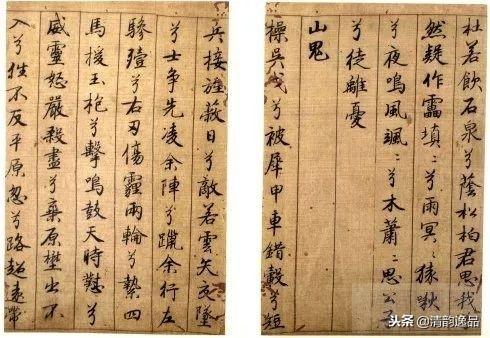 杜若飲石泉兮蔭松柏君思我
然疑作靁填〻兮雨冥〻猨啾〻
兮夜鳴風颯〻兮木蕭〻思公子
兮徒離憂
山鬼
操吳戈兮被犀甲車錯轂兮短
兵接旌蔽日兮敵若雲矢交墜
兮士争先凌余陣兮躐余行左
驂殪兮右刃傷霾兩輪兮縶四
馬援玉枹兮擊鳴鼓天時懟兮
威靈怒嚴殺盡兮棄原壄出不
入兮往不反平原忽兮路超遠帶
头条 @清韵逸品